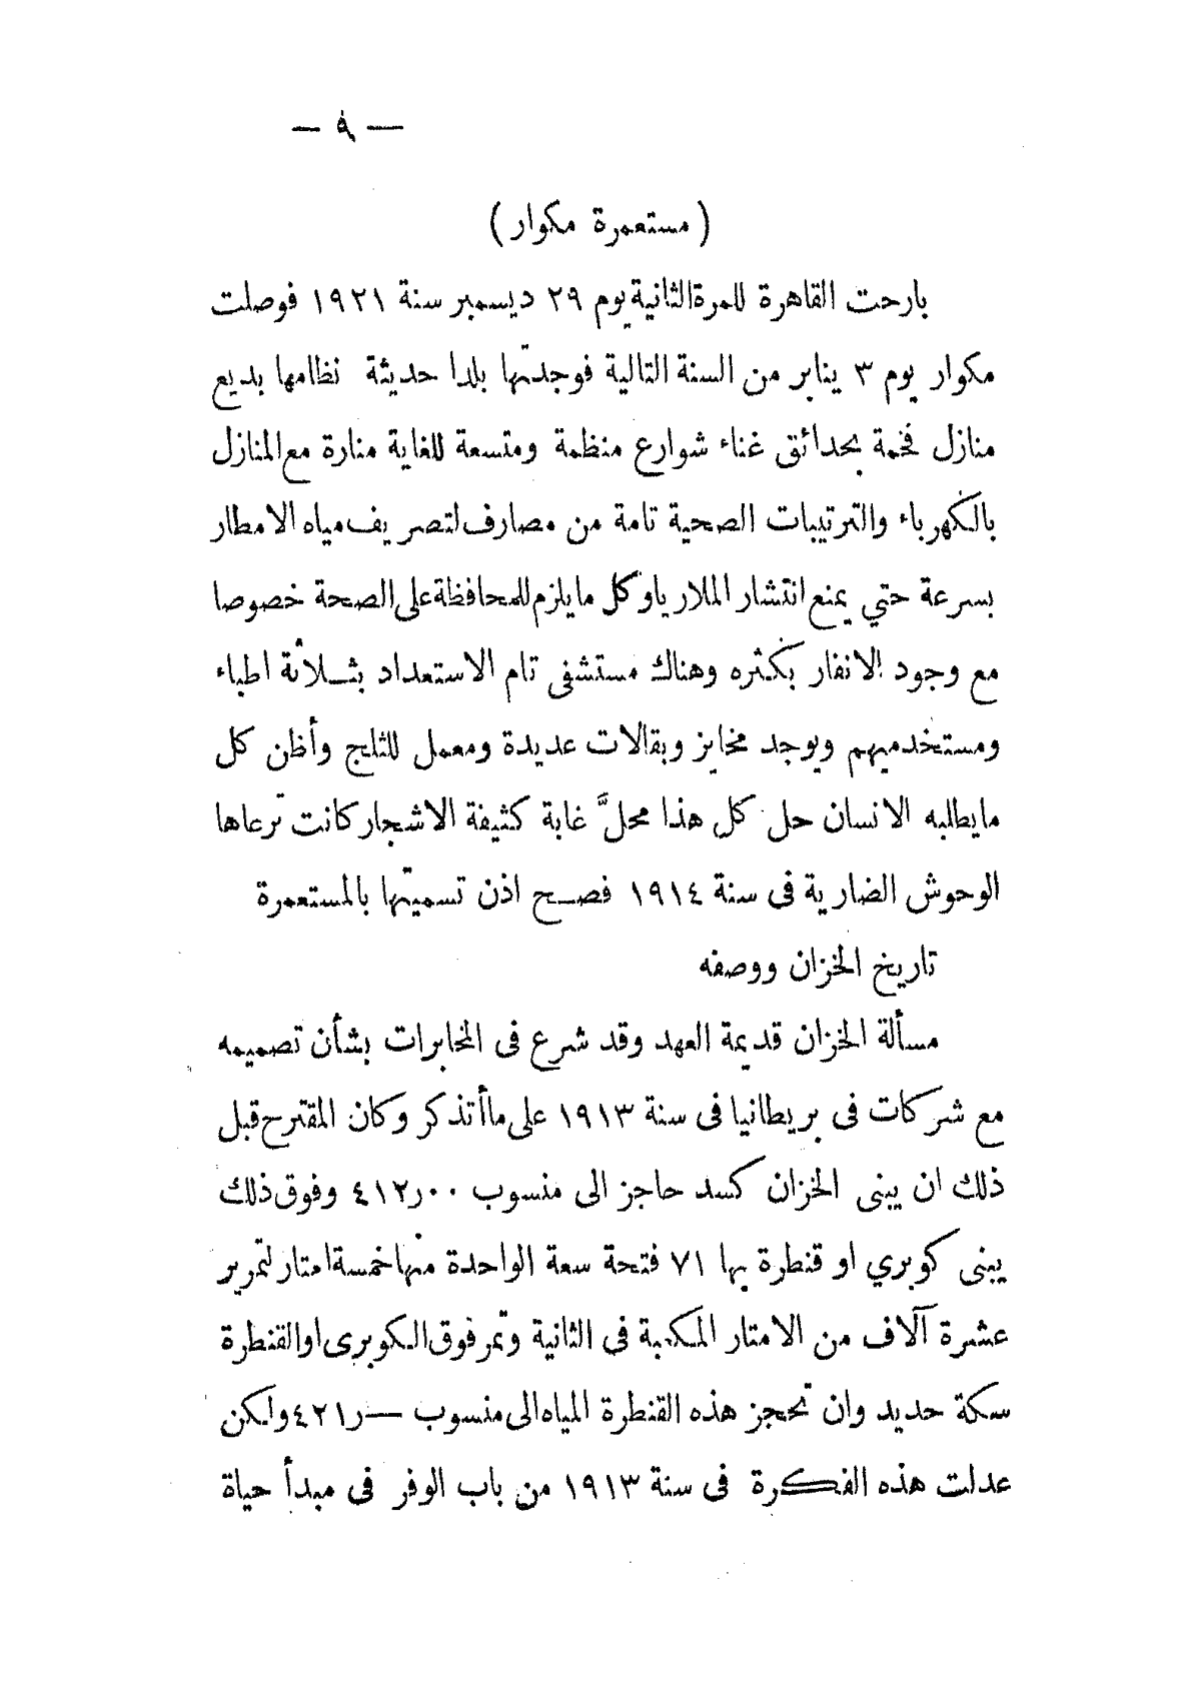 — ٩ —
( مستعمرة مكوار )
بارحت القاهرة للمرة الثانية يوم ٢٩ ديسمبر سنة ١٩٢١ فوصلت
مكوار يوم ٣ يناير من السنة التالية فوجدتها بلدا حديثة نظامها بديع
منازل فخمة بحدائق غناء شوارع منظمة ومتسعة للغاية منارة مع المنازل
بالكهرباء والترتيبات الصحية تامة من مصارف لتصريف مياه الامطار
بسرعة حتي يمنع انتشار الملاريا وكل مايلزم للمحافظة على الصحة خصوصا
مع وجود الانفار بكثره وهناك مستشفى تام الاستعداد بثلاثة اطباء
ومستخدميهم ويوجد مخابز وبقالات عديدة ومعمل للثلج وأظن كل
مايطلبه الانسان حل كل هذا محلَّ غابة كثيفة الاشجار كانت ترعاها
الوحوش الضارية فى سنة ١٩١٤ فصح اذن تسميتها بالمستعمرة
تاريخ الخزان ووصفه
مسألة الخزان قديمة العهد وقد شرع فى المخابرات بشأن تصميمه
مع شركات فى بريطانيا فى سنة ١٩١٣ على ماأتذكر وكان المقترح قبل
ذلك ان يبنى الخزان كسد حاجز الى منسوب ٠٠ر٤١٢ وفوق ذلك
يبنى كوبري او قنطرة بها ٧١ فتحة سعة الواحدة منها خمسة امتار لتمرير
عشرة آلاف من الامتار المكعبة فى الثانية وتمر فوق الكوبرى او القنطرة
سكة حديد وان تحجز هذه القنطرة المياه الى منسوب —ر٤٢١ ولكن
عدلت هذه الفكرة فى سنة ١٩١٣ من باب الوفر فى مبدأ حياة